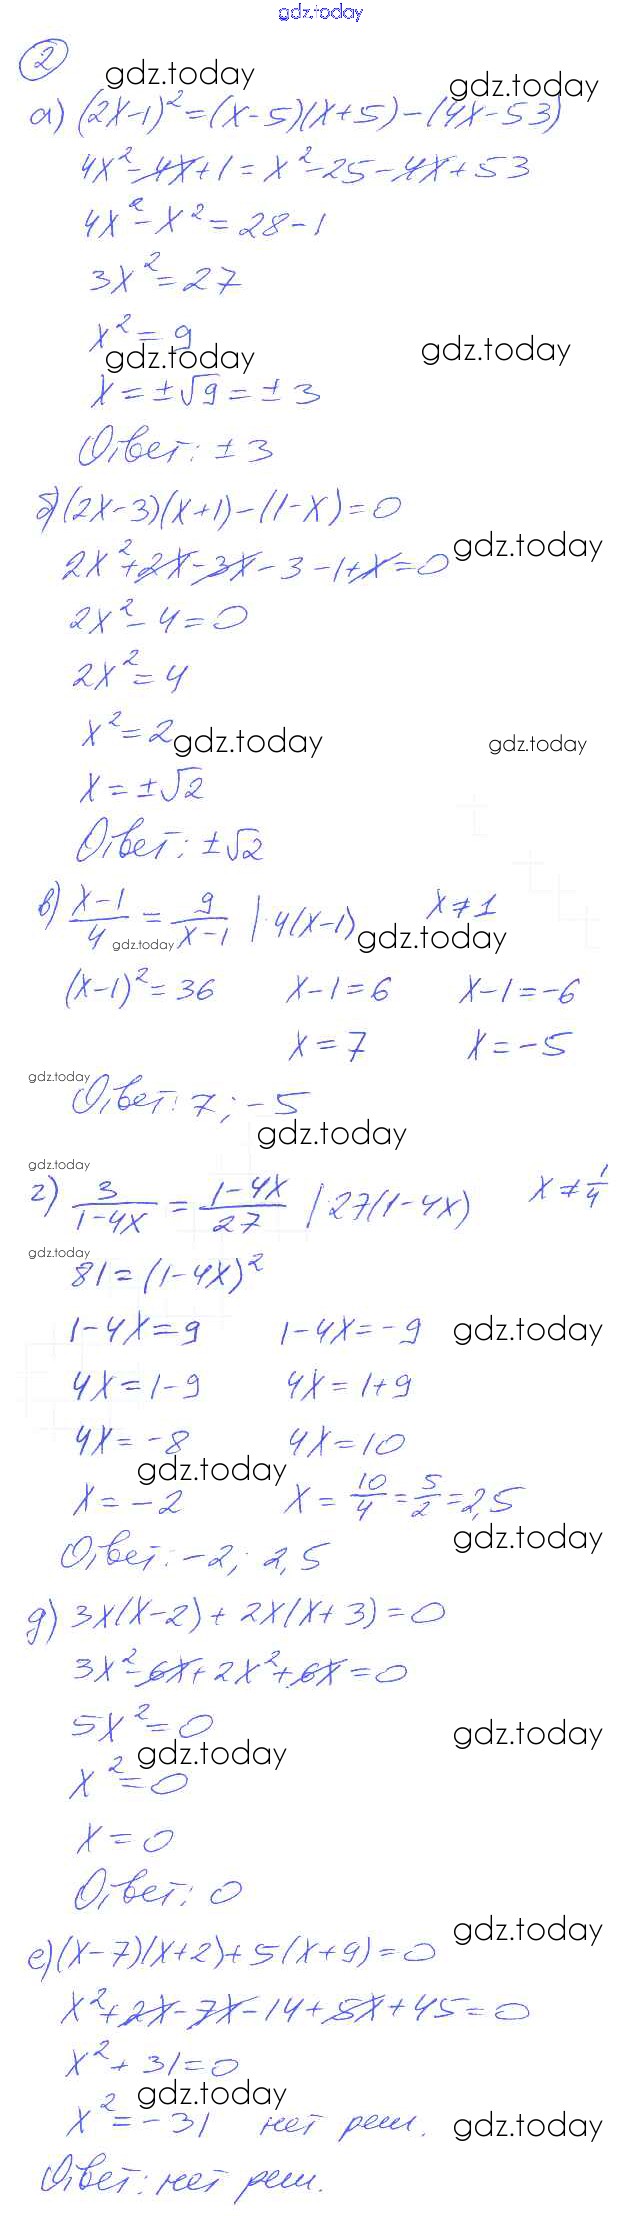 gdz.today
2
gdz.today gdz.today
а) (2x-1)² = (x-5)(x+5) - (4x-53)
4x² - 4x + 1 = x² - 25 - 4x + 53
4x² - x² = 28 - 1
3x² = 27
x² = 9
gdz.today gdz.today
x = ±√9 = ±3
Ответ: ±3
б) (2x-3)(x+1) - (1-x) = 0
gdz.today
2x² + 2x - 3x - 3 - 1 + x = 0
2x² - 4 = 0
2x² = 4
x² = 2
gdz.today gdz.today
x = ±√2
Ответ: ±√2
в) (x-1)/4 = 9/(x-1) | 4(x-1) x ≠ 1
gdz.today gdz.today
(x-1)² = 36 x-1 = 6 x-1 = -6
x = 7 x = -5
gdz.today
Ответ: 7; -5
gdz.today
gdz.today
г) 3/(1-4x) = (1-4x)/27 | 27(1-4x) x ≠ 1/4
gdz.today
81 = (1-4x)²
1-4x = 9 1-4x = -9 gdz.today
4x = 1-9 4x = 1+9
4x = -8 4x = 10
gdz.today
x = -2 x = 10/4 = 5/2 = 2,5
gdz.today
Ответ: -2; 2,5
д) 3x(x-2) + 2x(x+3) = 0
3x² - 6x + 2x² + 6x = 0
5x² = 0
gdz.today gdz.today
x² = 0
x = 0
Ответ: 0
gdz.today
е) (x-7)(x+2) + 5(x+9) = 0
x² + 2x - 7x - 14 + 5x + 45 = 0
x² + 31 = 0
gdz.today
x² = -31 нет реш. gdz.today
Ответ: нет реш.